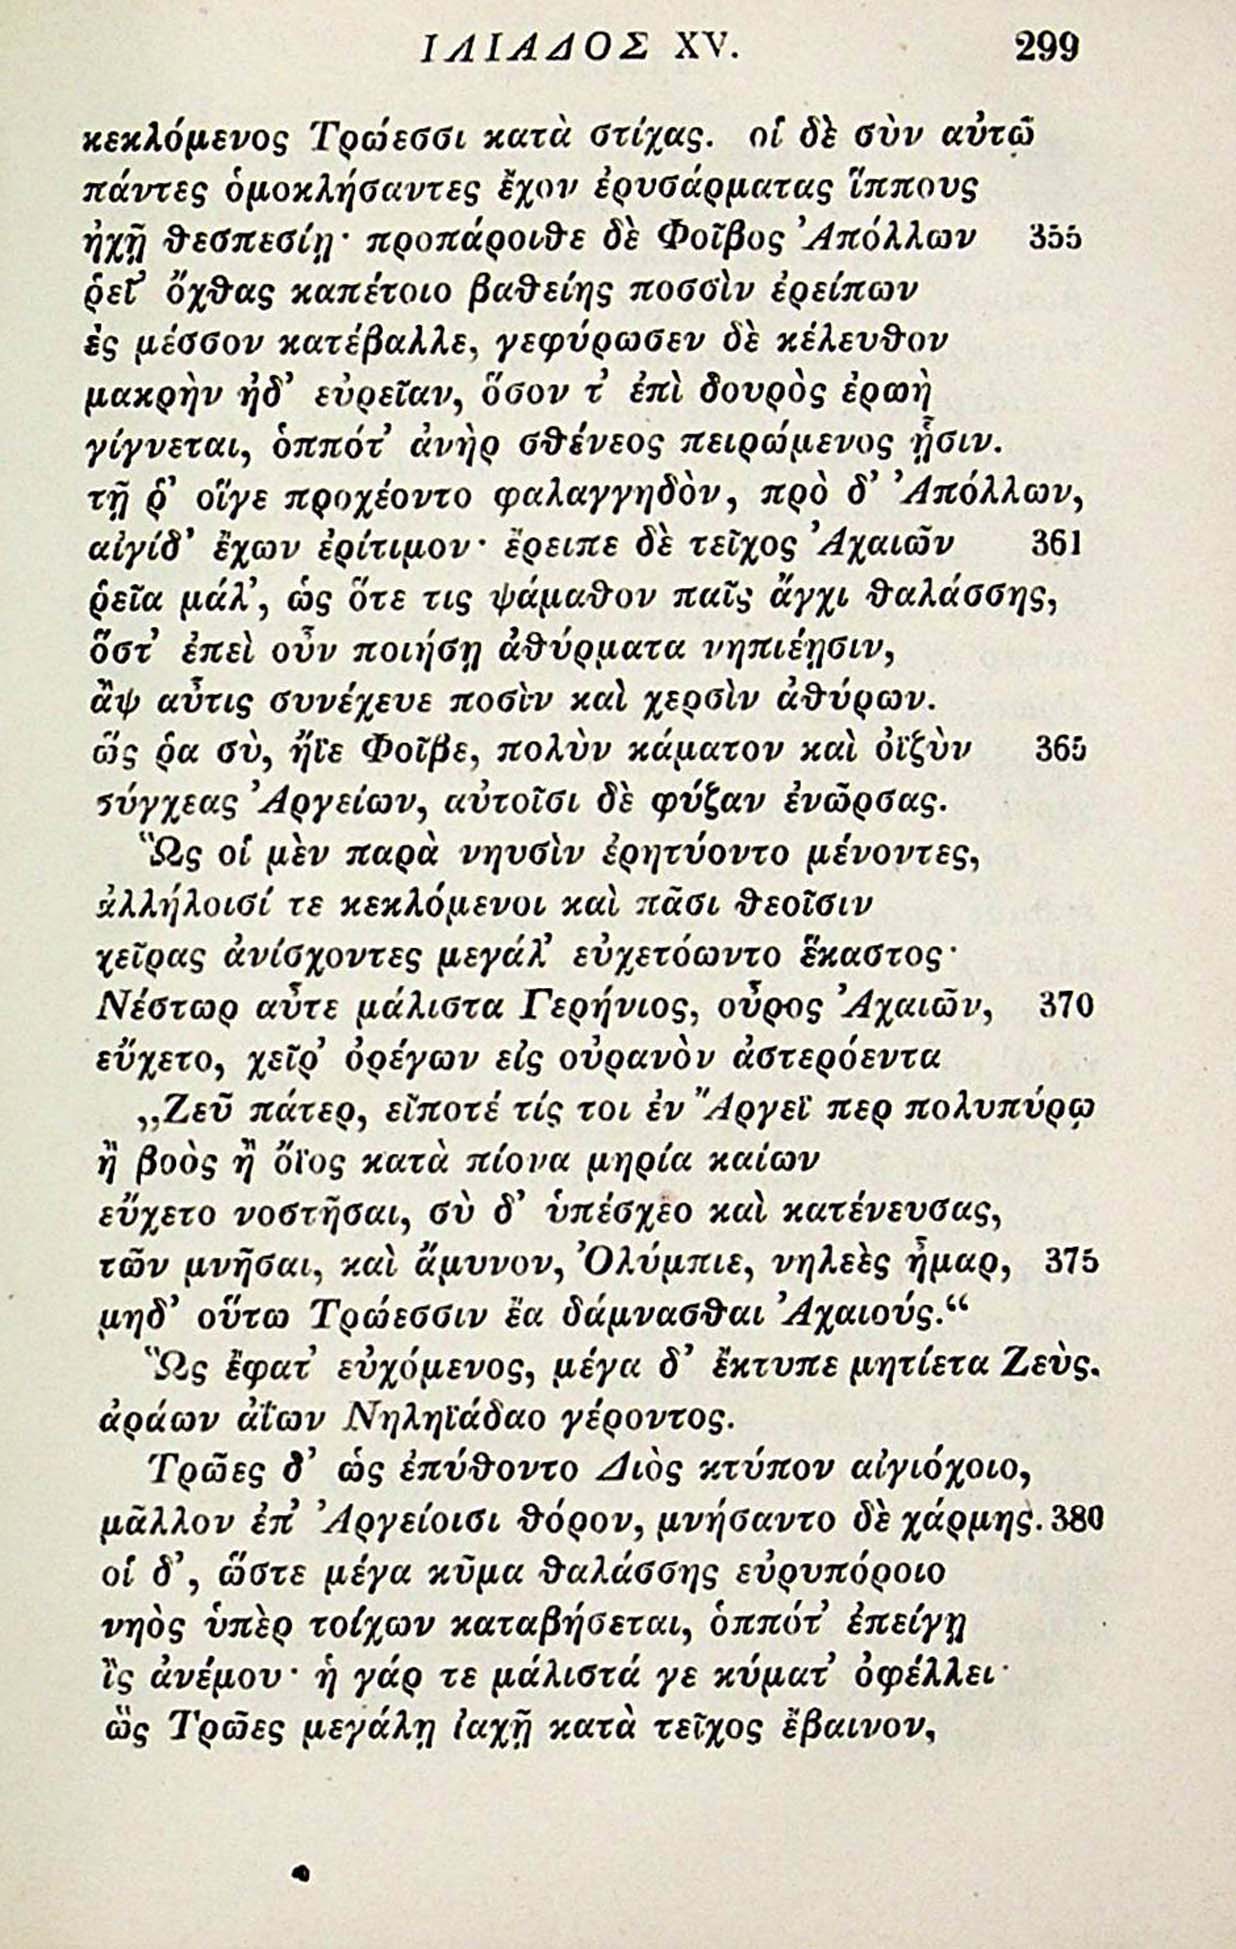 ΙΛΙΑΔΟΣ XV. 299
κεκλόμενος Τρώεσσι κατὰ στίχας. οἱ δὲ σὺν αὐτῷ
πάντες ὁμοκλήσαντες ἔχον ἐρυσάρματας ἵππους
ἠχῇ θεσπεσίῃ· προπάροιθε δὲ Φοῖβος Ἀπόλλων 355
ῥεῖ’ ὄχθας καπέτοιο βαθείης ποσσὶν ἐρείπων
ἐς μέσσον κατέβαλλε, γεφύρωσεν δὲ κέλευθον
μακρὴν ἠδ’ εὐρεῖαν, ὅσον τ’ ἐπὶ δουρὸς ἐρωὴ
γίγνεται, ὁππότ’ ἀνὴρ σθένεος πειρώμενος ᾖσιν.
τῇ ῥ’ οἵγε προχέοντο φαλαγγηδὸν, πρὸ δ’ Ἀπόλλων,
αἰγίδ’ ἔχων ἐρίτιμον· ἔρειπε δὲ τεῖχος Ἀχαιῶν 361
ῥεῖα μάλ’, ὡς ὅτε τις ψάμαθον παῖς ἄγχι θαλάσσης,
ὅστ’ ἐπεὶ οὖν ποιήσῃ ἀθύρματα νηπιέῃσιν,
ἂψ αὖτις συνέχευε ποσὶν καὶ χερσὶν ἀθύρων.
ὥς ῥα σὺ, ἤϊε Φοῖβε, πολὺν κάματον καὶ ὀϊζὺν 365
σύγχεας Ἀργείων, αὐτοῖσι δὲ φύζαν ἐνῶρσας.
Ὣς οἱ μὲν παρὰ νηυσὶν ἐρητύοντο μένοντες,
ἀλλήλοισί τε κεκλόμενοι καὶ πᾶσι θεοῖσιν
χεῖρας ἀνίσχοντες μεγάλ’ εὐχετόωντο ἕκαστος·
Νέστωρ αὖτε μάλιστα Γερήνιος, οὖρος Ἀχαιῶν, 370
εὔχετο, χεῖρ’ ὀρέγων εἰς οὐρανὸν ἀστερόεντα
„Ζεῦ πάτερ, εἴποτέ τίς τοι ἐν Ἄργεϊ περ πολυπύρῳ
ἢ βοὸς ἢ ὄϊος κατὰ πίονα μηρία καίων
εὔχετο νοστῆσαι, σὺ δ’ ὑπέσχεο καὶ κατένευσας,
τῶν μνῆσαι, καὶ ἄμυνον, Ὀλύμπιε, νηλεὲς ἦμαρ, 375
μηδ’ οὕτω Τρώεσσιν ἔα δάμνασθαι Ἀχαιούς.“
Ὣς ἔφατ’ εὐχόμενος, μέγα δ’ ἔκτυπε μητίετα Ζεὺς,
ἀράων ἀΐων Νηληϊάδαο γέροντος.
Τρῶες δ’ ὡς ἐπύθοντο Διὸς κτύπον αἰγιόχοιο,
μᾶλλον ἐπ’ Ἀργείοισι θόρον, μνήσαντο δὲ χάρμης. 380
οἱ δ’, ὥστε μέγα κῦμα θαλάσσης εὐρυπόροιο
νηὸς ὑπὲρ τοίχων καταβήσεται, ὁππότ’ ἐπείγῃ
ἲς ἀνέμου· ἡ γάρ τε μάλιστά γε κύματ’ ὀφέλλει·
ὣς Τρῶες μεγάλῃ ἰαχῇ κατὰ τεῖχος ἔβαινον,